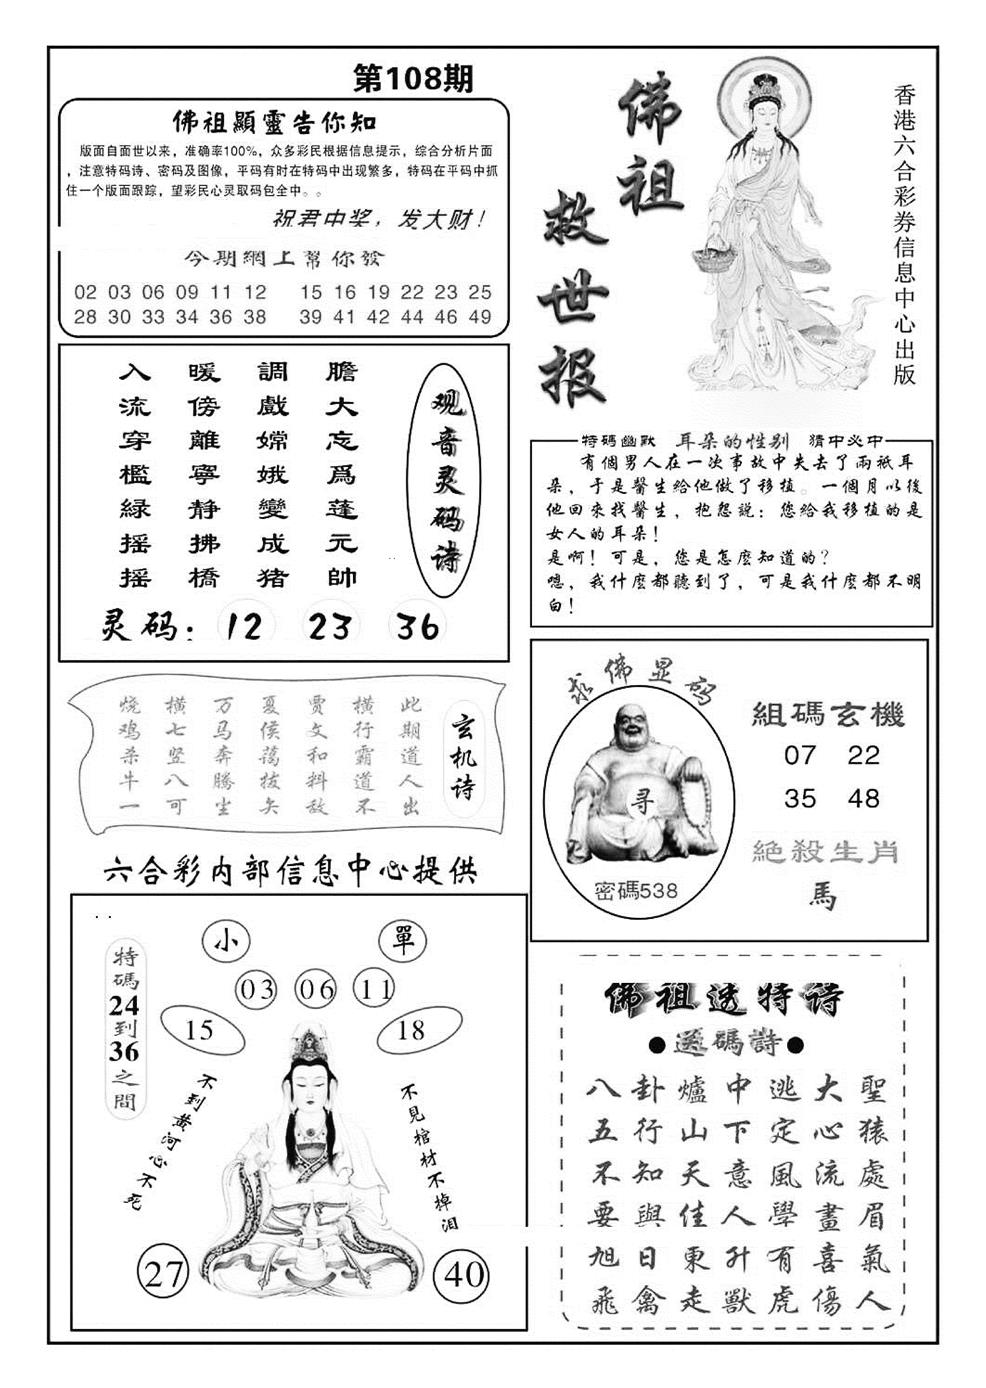 第108期
佛祖顯靈告你知
版面自面世以来，准确率100%，众多彩民根据信息提示，综合分析片面
，注意特码诗、密码及图像，平码有时在特码中出现繁多，特码在平码中抓
住一个版面跟踪，望彩民心灵取码包全中。。
祝君中奖，发大财！
今期網上幫你發
02 03 06 09 11 12 15 16 19 22 23 25
28 30 33 34 36 38 39 41 42 44 46 49
佛祖救世报
香港六合彩券信息中心出版
观音灵码诗
膽大忘爲蓬元帥
調戲嫦娥變成猪
暖傍離寧静拂橋
入流穿檻緑摇摇
灵码：12 23 36
特碼幽默 耳朵的性别 猜中必中
有個男人在一次事故中失去了兩祇耳
朵，于是醫生給他做了移植。一個月以後
他回來找醫生，抱怨説：您給我移植的是
女人的耳朵！
是啊！可是，您是怎麽知道的？
嗯，我什麽都聽到了，可是我什麽都不明
白！
玄机诗
此期道人出
横行霸道不
贾文和料敌
夏侯蔼拔矢
万马奔騰尘
横七竖八可
烧鸡杀牛一
求佛显码
寻
密碼538
組碼玄機
07 22
35 48
絶殺生肖
馬
六合彩内部信息中心提供
特碼24到36之間
小 單
03 06 11
15 18
不到黄河心不死
不見棺材不掉泪
27 40
佛祖透特诗
●送碼詩●
八卦爐中逃大聖
五行山下定心猿
不知天意風流處
要與佳人學畫眉
旭日東升有喜氣
飛禽走獸虎傷人